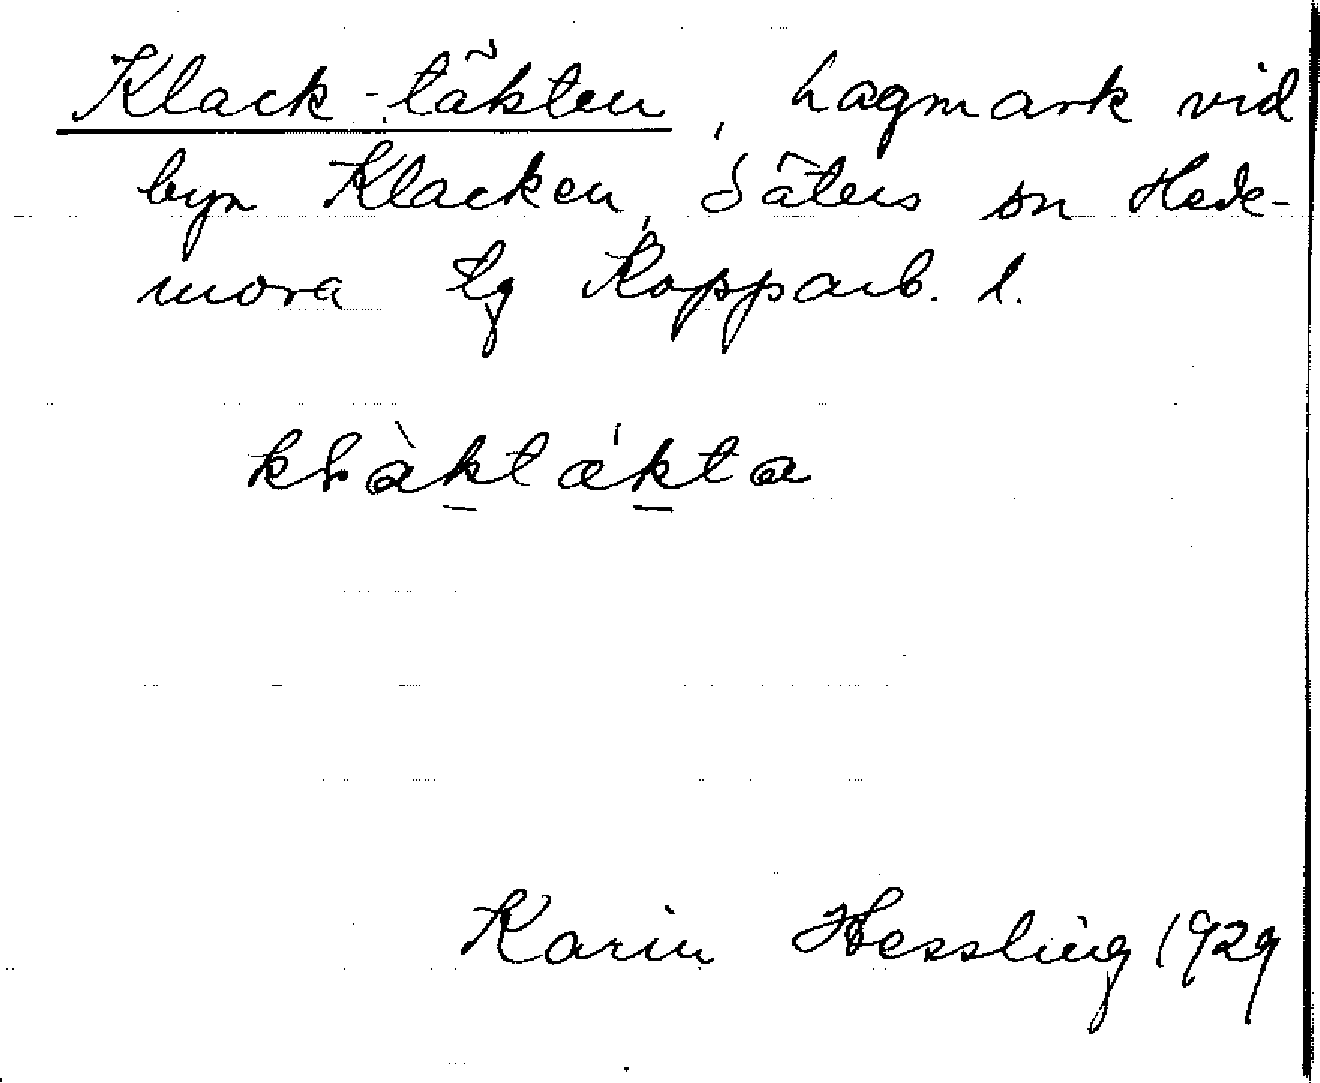 Klack-täkten, hagmark vid
byn Klacken, Säters sn Hede-
mora tg Kopparb. l.
klàktákta
Karin Hessling 1929